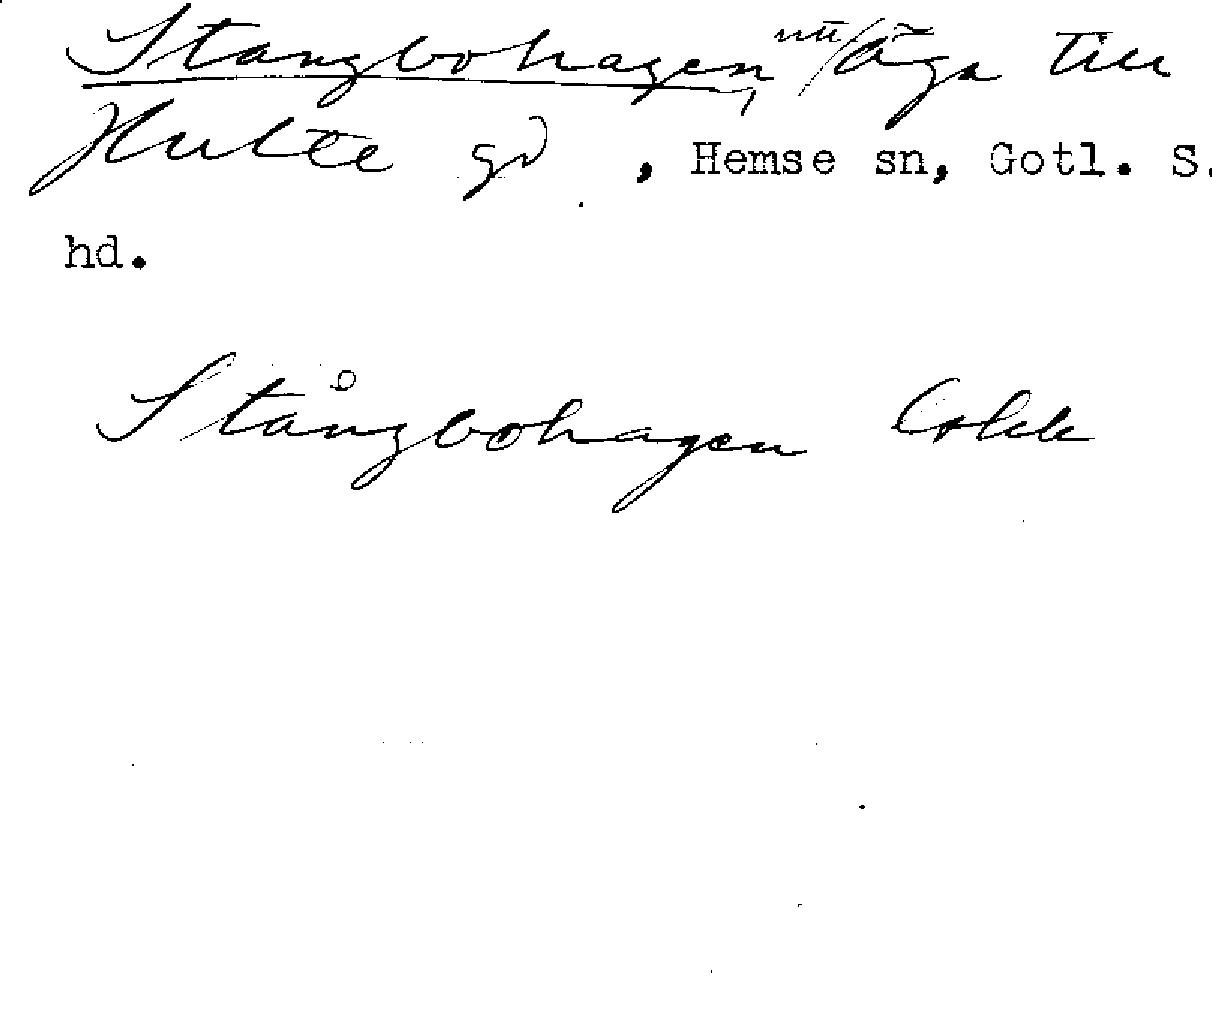 Stangbohagen, nu/äga till
Hulte gd , Hemse sn, Gotl. S.
hd.
Stångbohagen